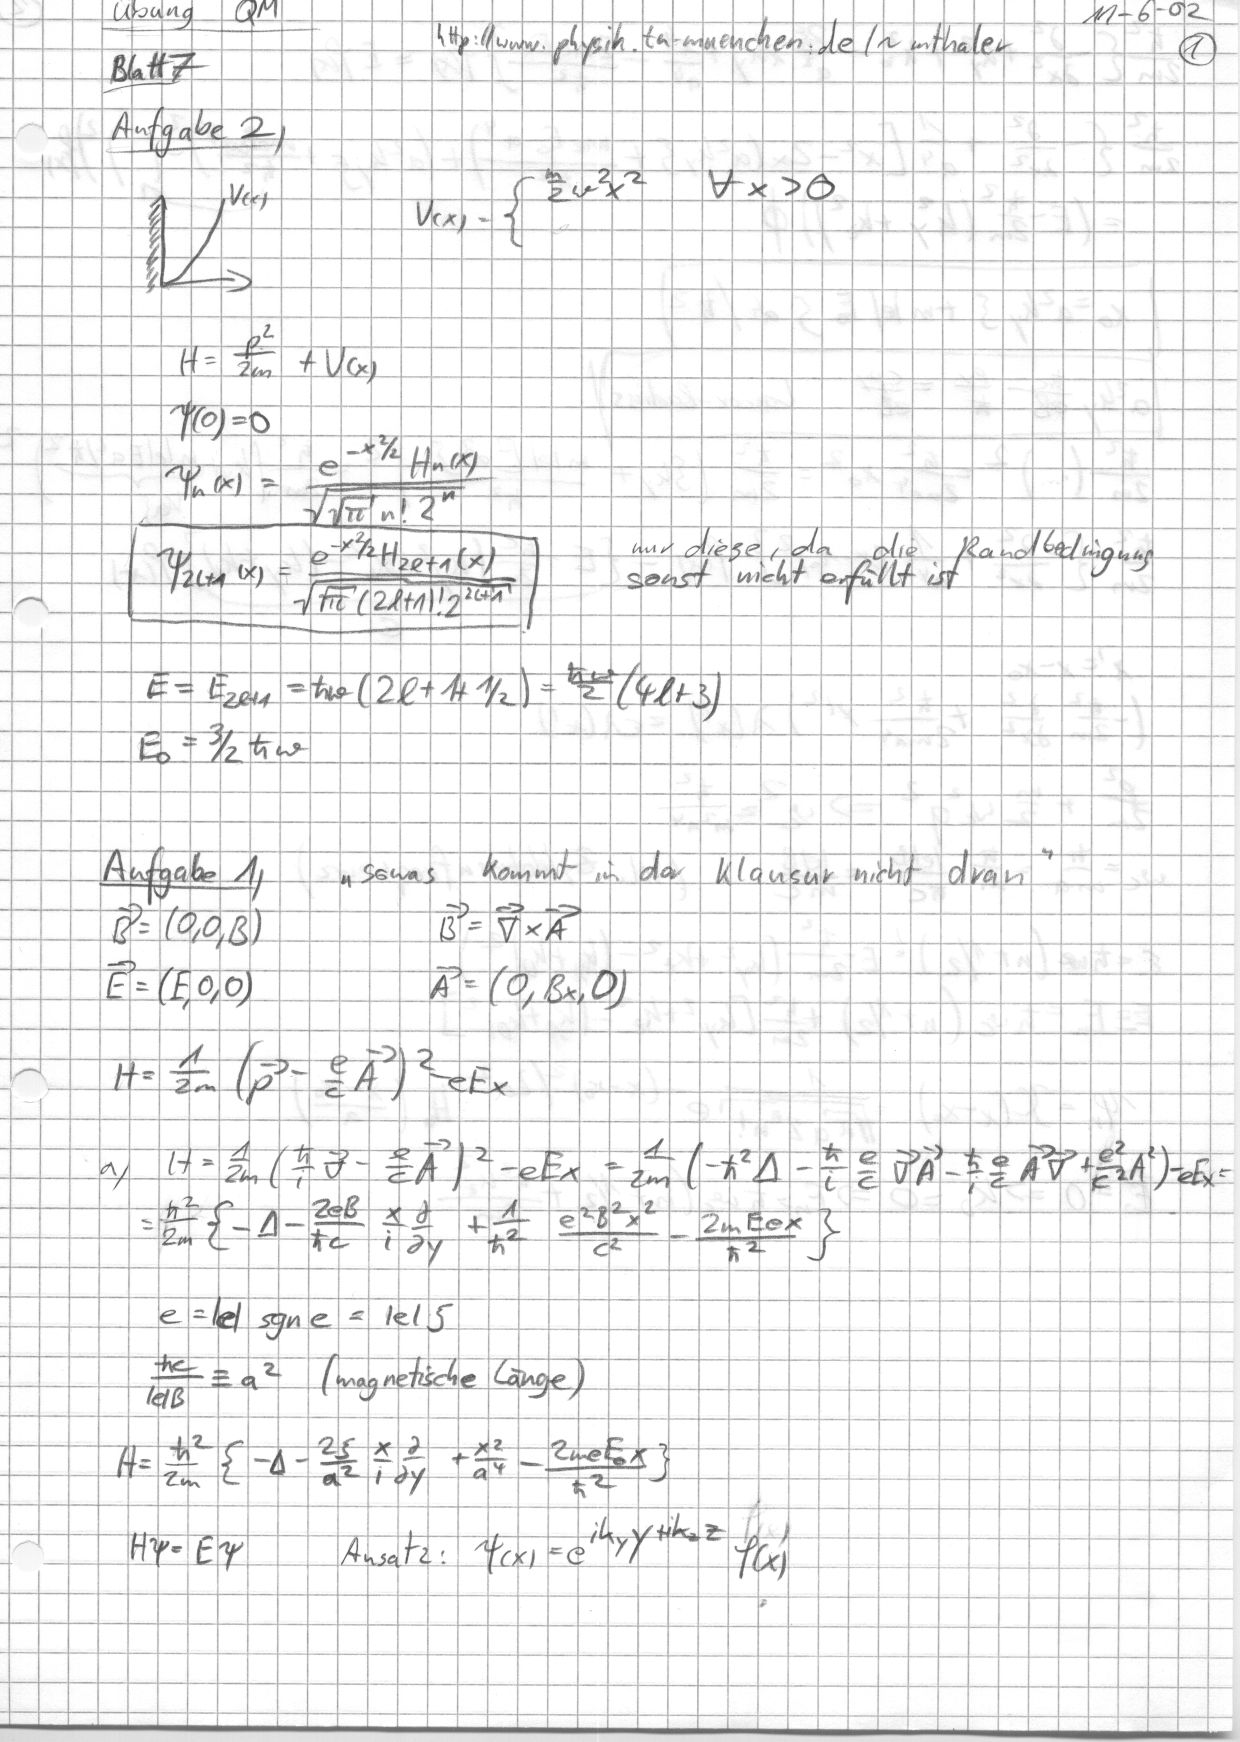 Übung QM 11-6-02
http://www.physik.tu-muenchen.de/~mthaler ①
Blatt 7
Aufgabe 2,
V(x)
V(x) = { m/2 ω²x² ∀ x > 0
H = p²/2m + V(x)
ψ(0) = 0
ψₙ(x) = e^(-x²/2) Hₙ(x) / √(√π n! 2ⁿ)
ψ_{2l+1}(x) = e^(-x²/2) H_{2l+1}(x) / √(√π (2l+1)! 2^{2l+1}) nur diese, da die Randbedingung
sonst nicht erfüllt ist
E = E_{2l+1} = ħω (2l + 1 + 1/2) = ħω/2 (4l+3)
E₀ = 3/2 ħω
Aufgabe 1, „sowas kommt in der Klausur nicht dran"
B⃗ = (0,0,B) B⃗ = ∇⃗ × A⃗
E⃗ = (E,0,0) A⃗ = (0, Bx, 0)
H = 1/2m (p⃗ - e/c A⃗)² - eEx
a) H = 1/2m (ħ/i ∇⃗ - e/c A⃗)² - eEx = 1/2m (-ħ²Δ - ħ/i e/c ∇⃗A⃗ - ħ/i e/c A⃗∇⃗ + e²/c² A²) - eEx =
= ħ²/2m { -Δ - 2eB/ħc x/i ∂/∂y + 1/ħ² e²B²x²/c² - 2mEex/ħ² }
e = |e| sgn e = |e| ξ
ħc/|e|B ≡ a² (magnetische Länge)
H = ħ²/2m { -Δ - 2ξ/a² x/i ∂/∂y + x²/a⁴ - 2meE₀x/ħ² }
Hψ = Eψ Ansatz: ψ(x) = e^{ik_y y + ik_z z} φ(x)